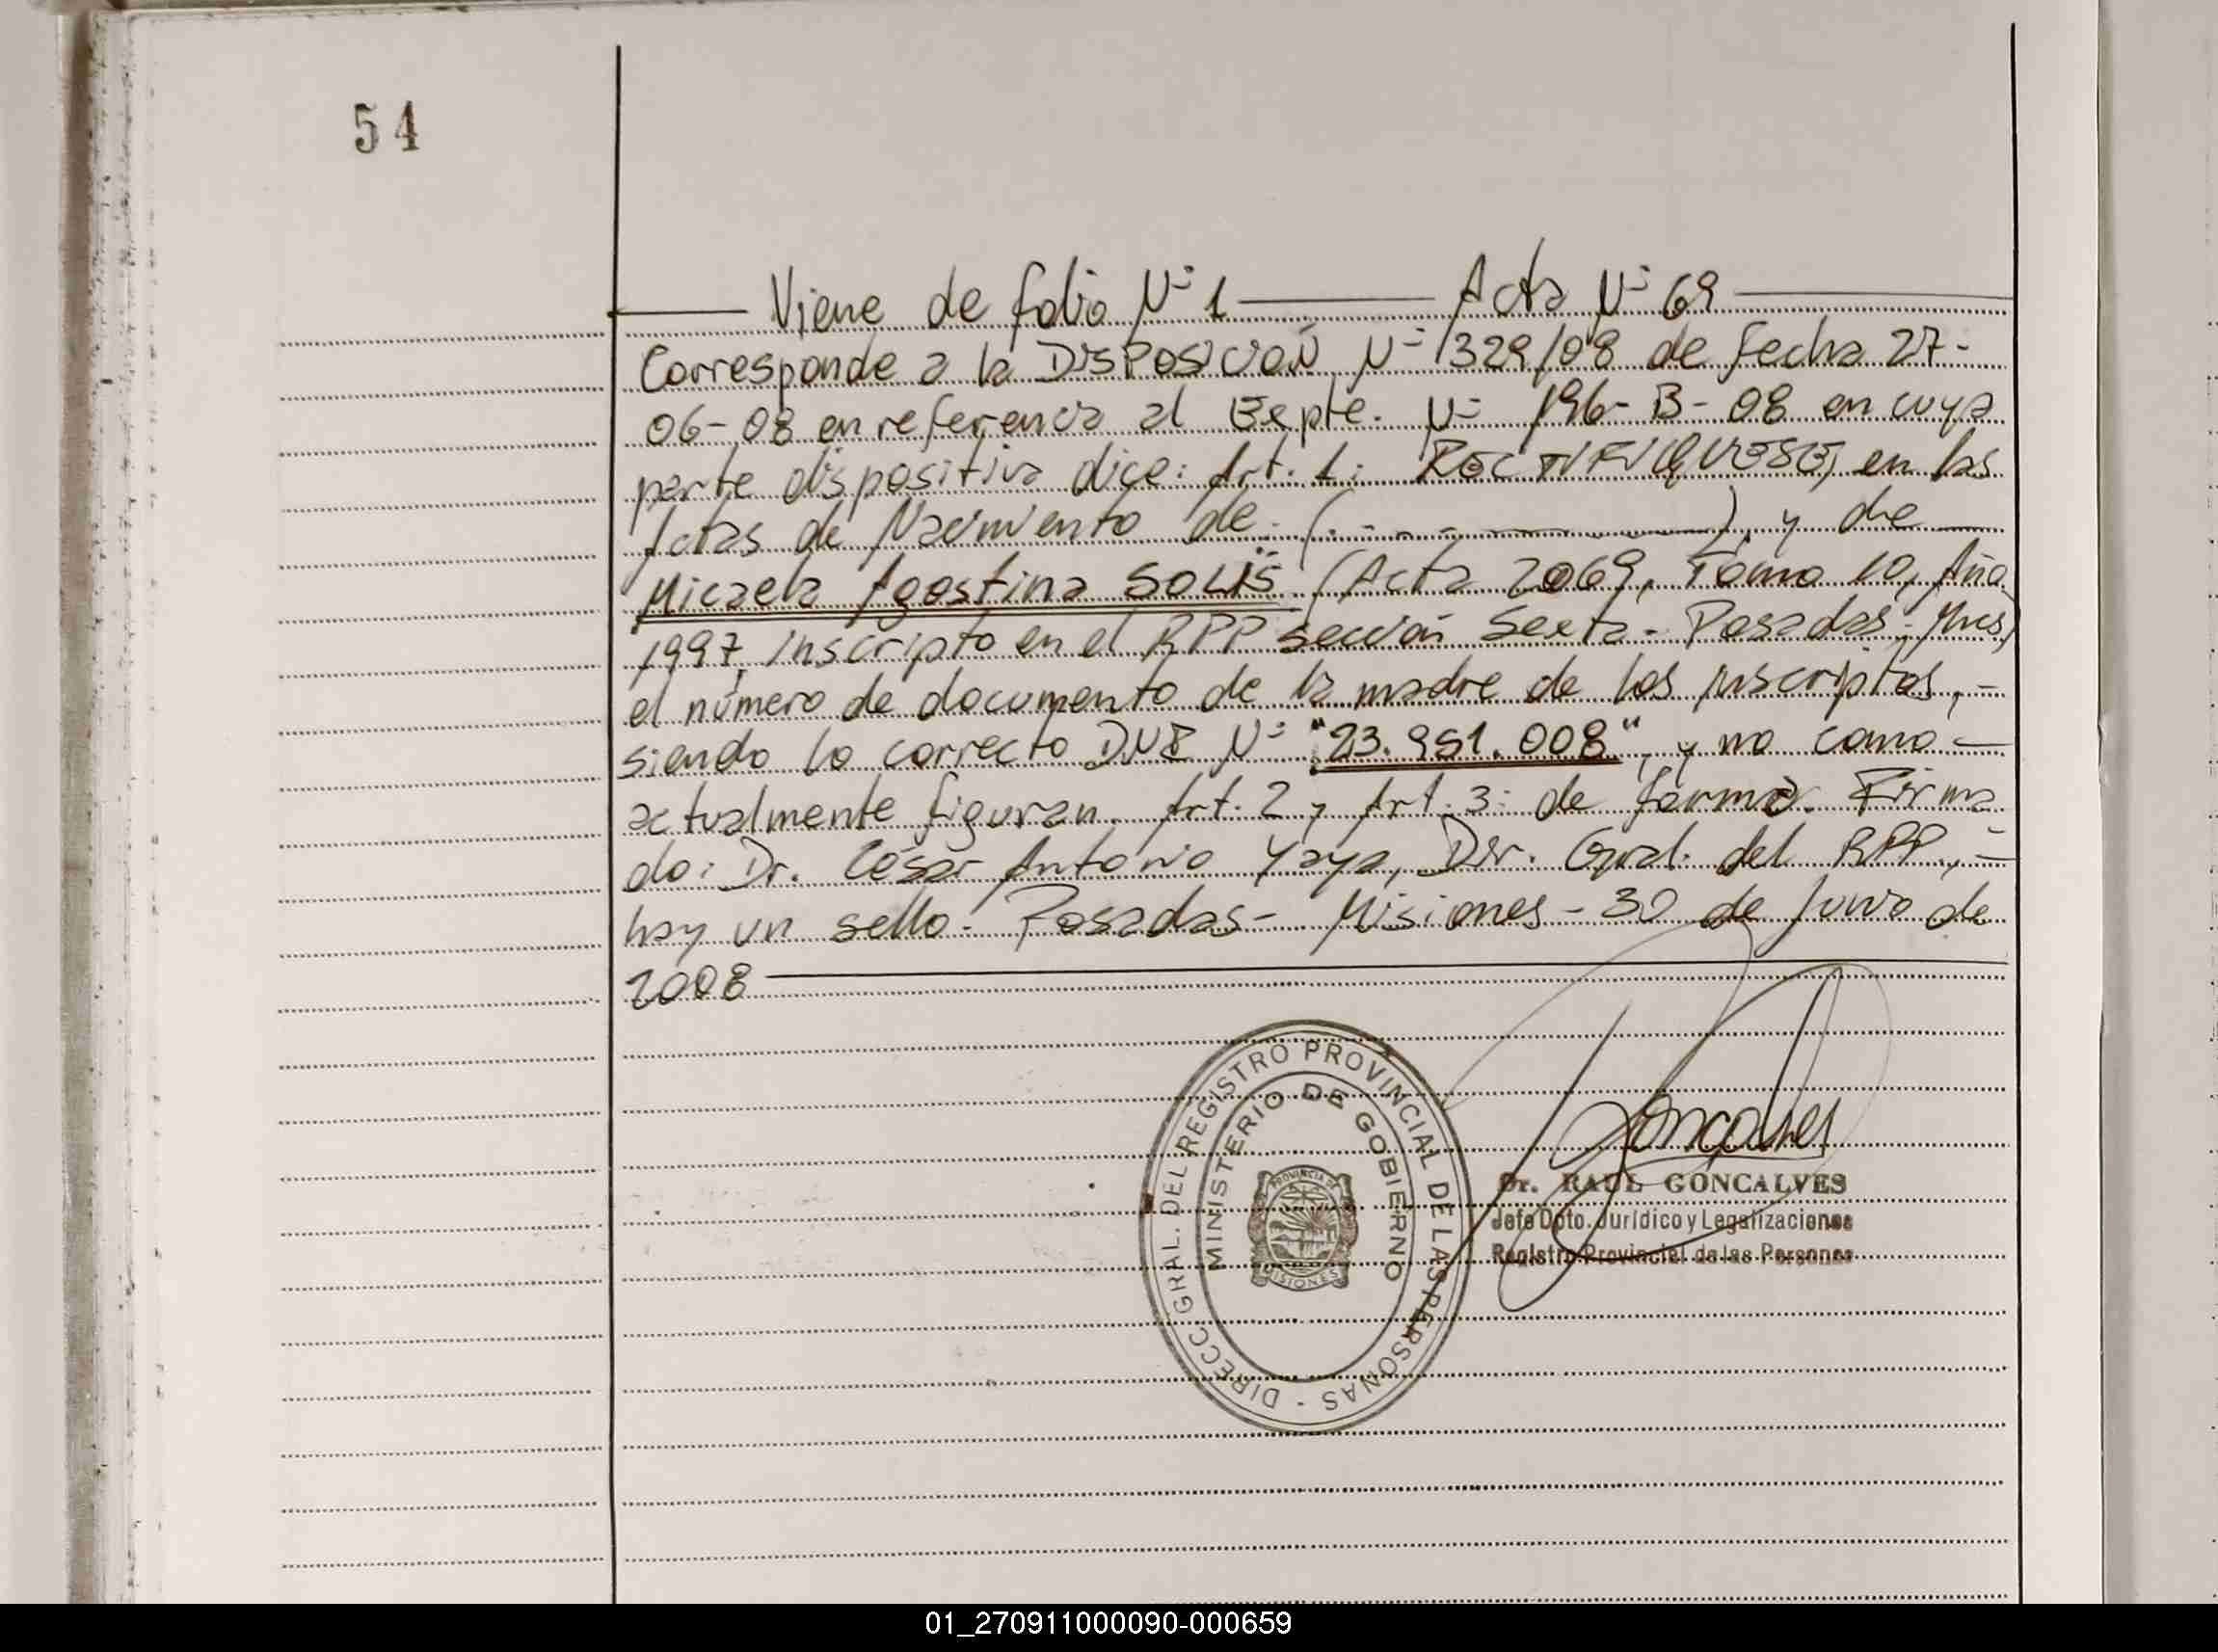 54
Viene de folio Nº 1 Acta Nº 69
Corresponde a la DISPOSICION Nº 1329/08 de fecha 27-
06-08 en referencia al Expte. Nº 196-B-08 en cuya
parte dispositiva dice: Art. 1: RECTIFIQUESE, en las
Actas de Nacimiento de: (. - - - ), y de
Micaela Agostina SOLIS (Acta 2069, Tomo 10, Año
1997, inscripto en el RPP sección Sexta - Posadas - Mnes)
el número de documento de la madre de los inscriptos, -
siendo lo correcto DNI Nº "23.951.008", y no como -
actualmente figuran. Art. 2 y Art. 3: de forma. Firma
do: Dr. César Antonio Yaya, Dir. Gral. del RPP, -
hay un sello - Posadas - Misiones - 30 de Junio de
2008
DIRECC GRAL. DEL REGISTRO PROVINCIAL DE LAS PERSONAS -
MINISTERIO DE GOBIERNO
PROVINCIA DE
MISIONES
Goncalves
Dr. RAUL GONCALVES
Jefe Dpto. Jurídico y Legalizaciones
Registro Provincial de las Personas
01_270911000090-000659